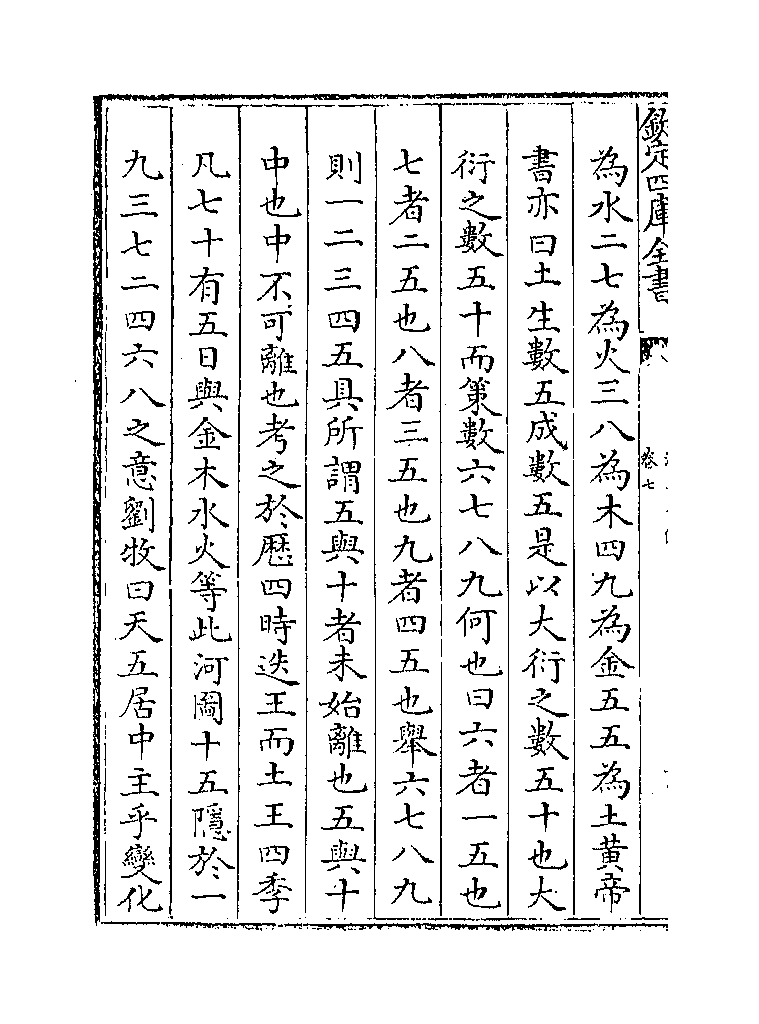 欽定四庫全書
卷七
為水二七為火三八為木四九為金五五為土黄帝
書亦曰土生數五成數五是以大衍之數五十也大
衍之數五十而策數六七八九何也曰六者一五也
七者二五也八者三五也九者四五也舉六七八九
則一二三四五具所謂五與十者未始離也五與十
中也中不可離也考之於歴四時迭王而土王四季
凡七十有五日與金木水火等此河圖十五隱於一
九三七二四六八之意劉牧曰天五居中主乎變化